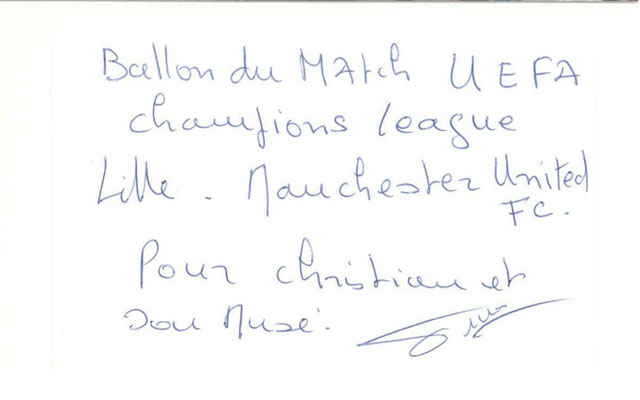 Ballon du MAtch UEFA
champions league
Lille . Manchester United
FC.
Pour christian et
son Musé.